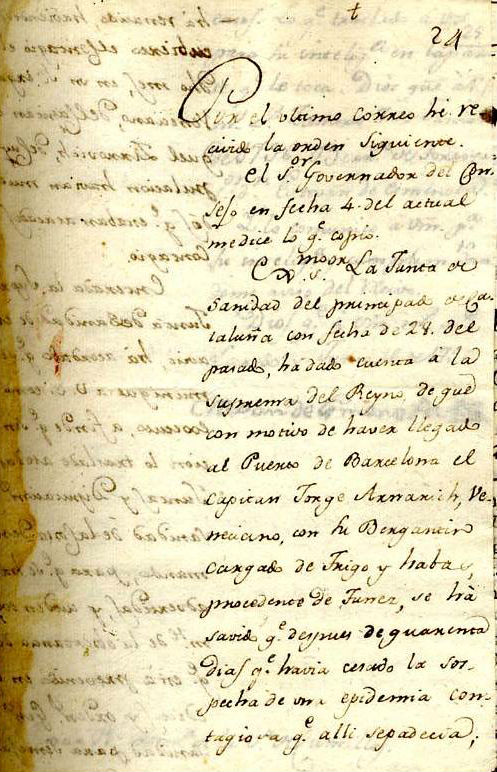 †
24
Por el ultimo correo hè re
civido la orden siguiente.
El S.or Governador del Con-
sejo en fecha 4. del actual
medice lo q.e copio.
S. La Junta de
Sanidad del principado de Ca
taluña con fecha de 28. del
pasado, ha dado cuenta à la
Suprema del Reyno, de que
con motivo de haver llegado
al Puerto de Barcelona el
Capitan Jorge Arnarich, Ve-
neciano, con su Bergantin
cargado de Trigo y habas,
procedente de Tunez, se hà
savido q.e despues de quarenta
dias q.e havia cesado la sos-
pecha de una epidemia con-
tagiosa q.e alli sepadecia,